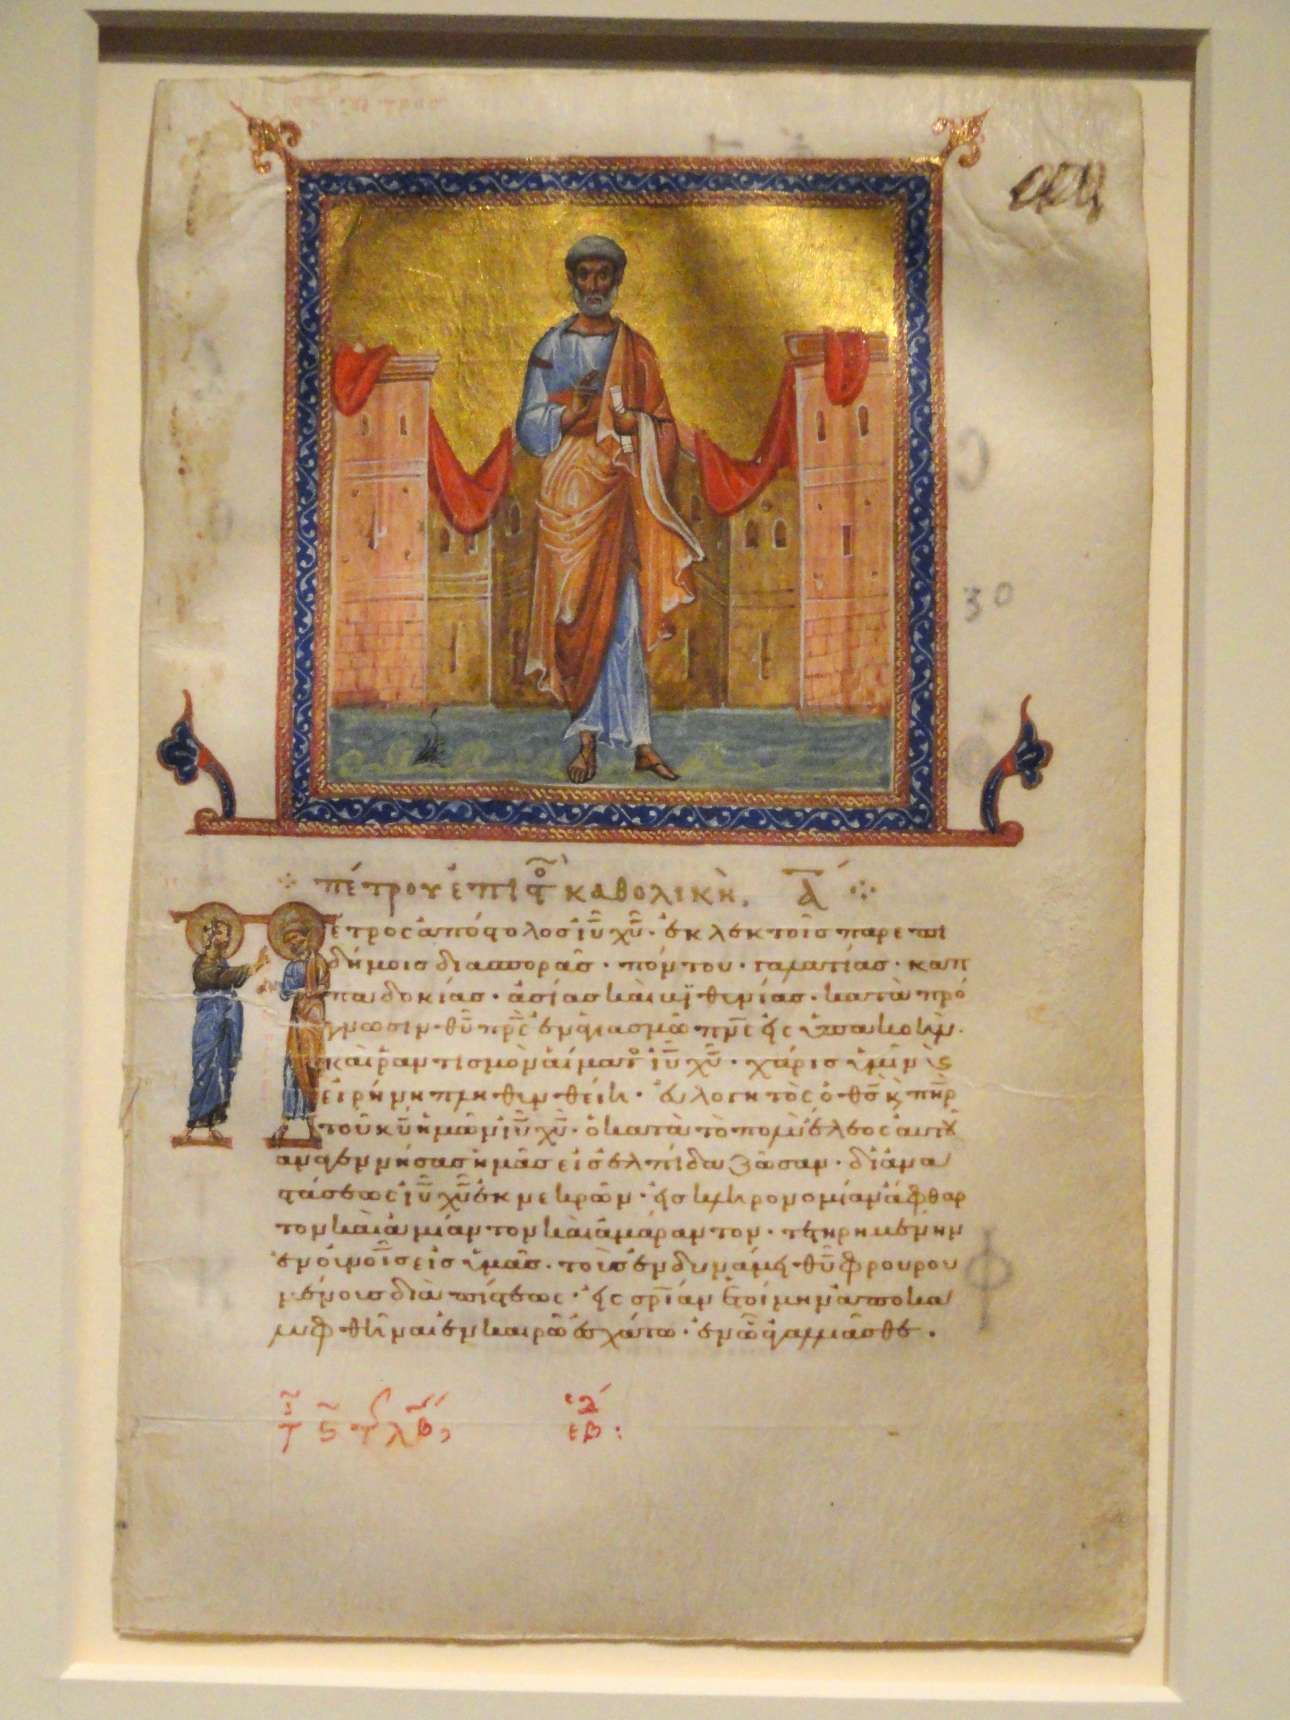 πέτρου ἐπιϛο καθολικὴ. Α
Πέτρος ἀπόϛολοσ ἰῦ χῦ· ἐκλεκτοῖσ παρεπι
δήμοισ διασπορᾶσ· πόντου· γαλατίασ· καπ
παδοκίασ· ἀσίασ καὶ βϊθυνίασ· κατὰ πρό
γνωσιν θῦ πρς ἐν ἁγιασμῶ πνς εἰς ὑπακοὴν.
καὶ ῥαντισμὸν αἵματος ἰῦ χῦ· χάρισ ὑμῖν κὶ
εἰρήνη πληθυνθείη· εὐλογητὸς ὁ θσ κὶ πὴρ
τοῦ κῦ ἡμῶν ἰῦ χῦ· ὁ κατὰ τὸ πολὺ ἔλεος αυτοῦ
αναγεννήσασ ἡμᾶσ εἰσ ἐλπίδα ζῶσαν· δι ἀνα
ϛάσεως ἰῦ χῦ ἐκ νεκρῶν· εἰσ κληρονομίαν ἄφθαρ
τον καὶ ἀμίαντον καὶ ἀμάραντον· τετηρημένην
ἐν οὐνοῖσ εἰσ ὑμᾶσ· τοὺσ ἐν δυνάμει θῦ φρουρου
μένουσ διὰ πίϛεως· εἰς σρίαν ἑτοίμην ἀποκα
λυφθῆναι ἐν καιρῶ ἐσχάτω· ἐν ὧ ἀγαλλιᾶσθε.
30
φ